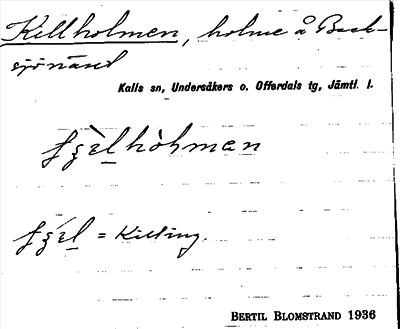 Killholmen, holme å Back-
sjönäset
Kalls sn, Undersåkers o. Offerdals tg, Jämtl. l.
= Killing.
BERTIL BLOMSTRAND 1936